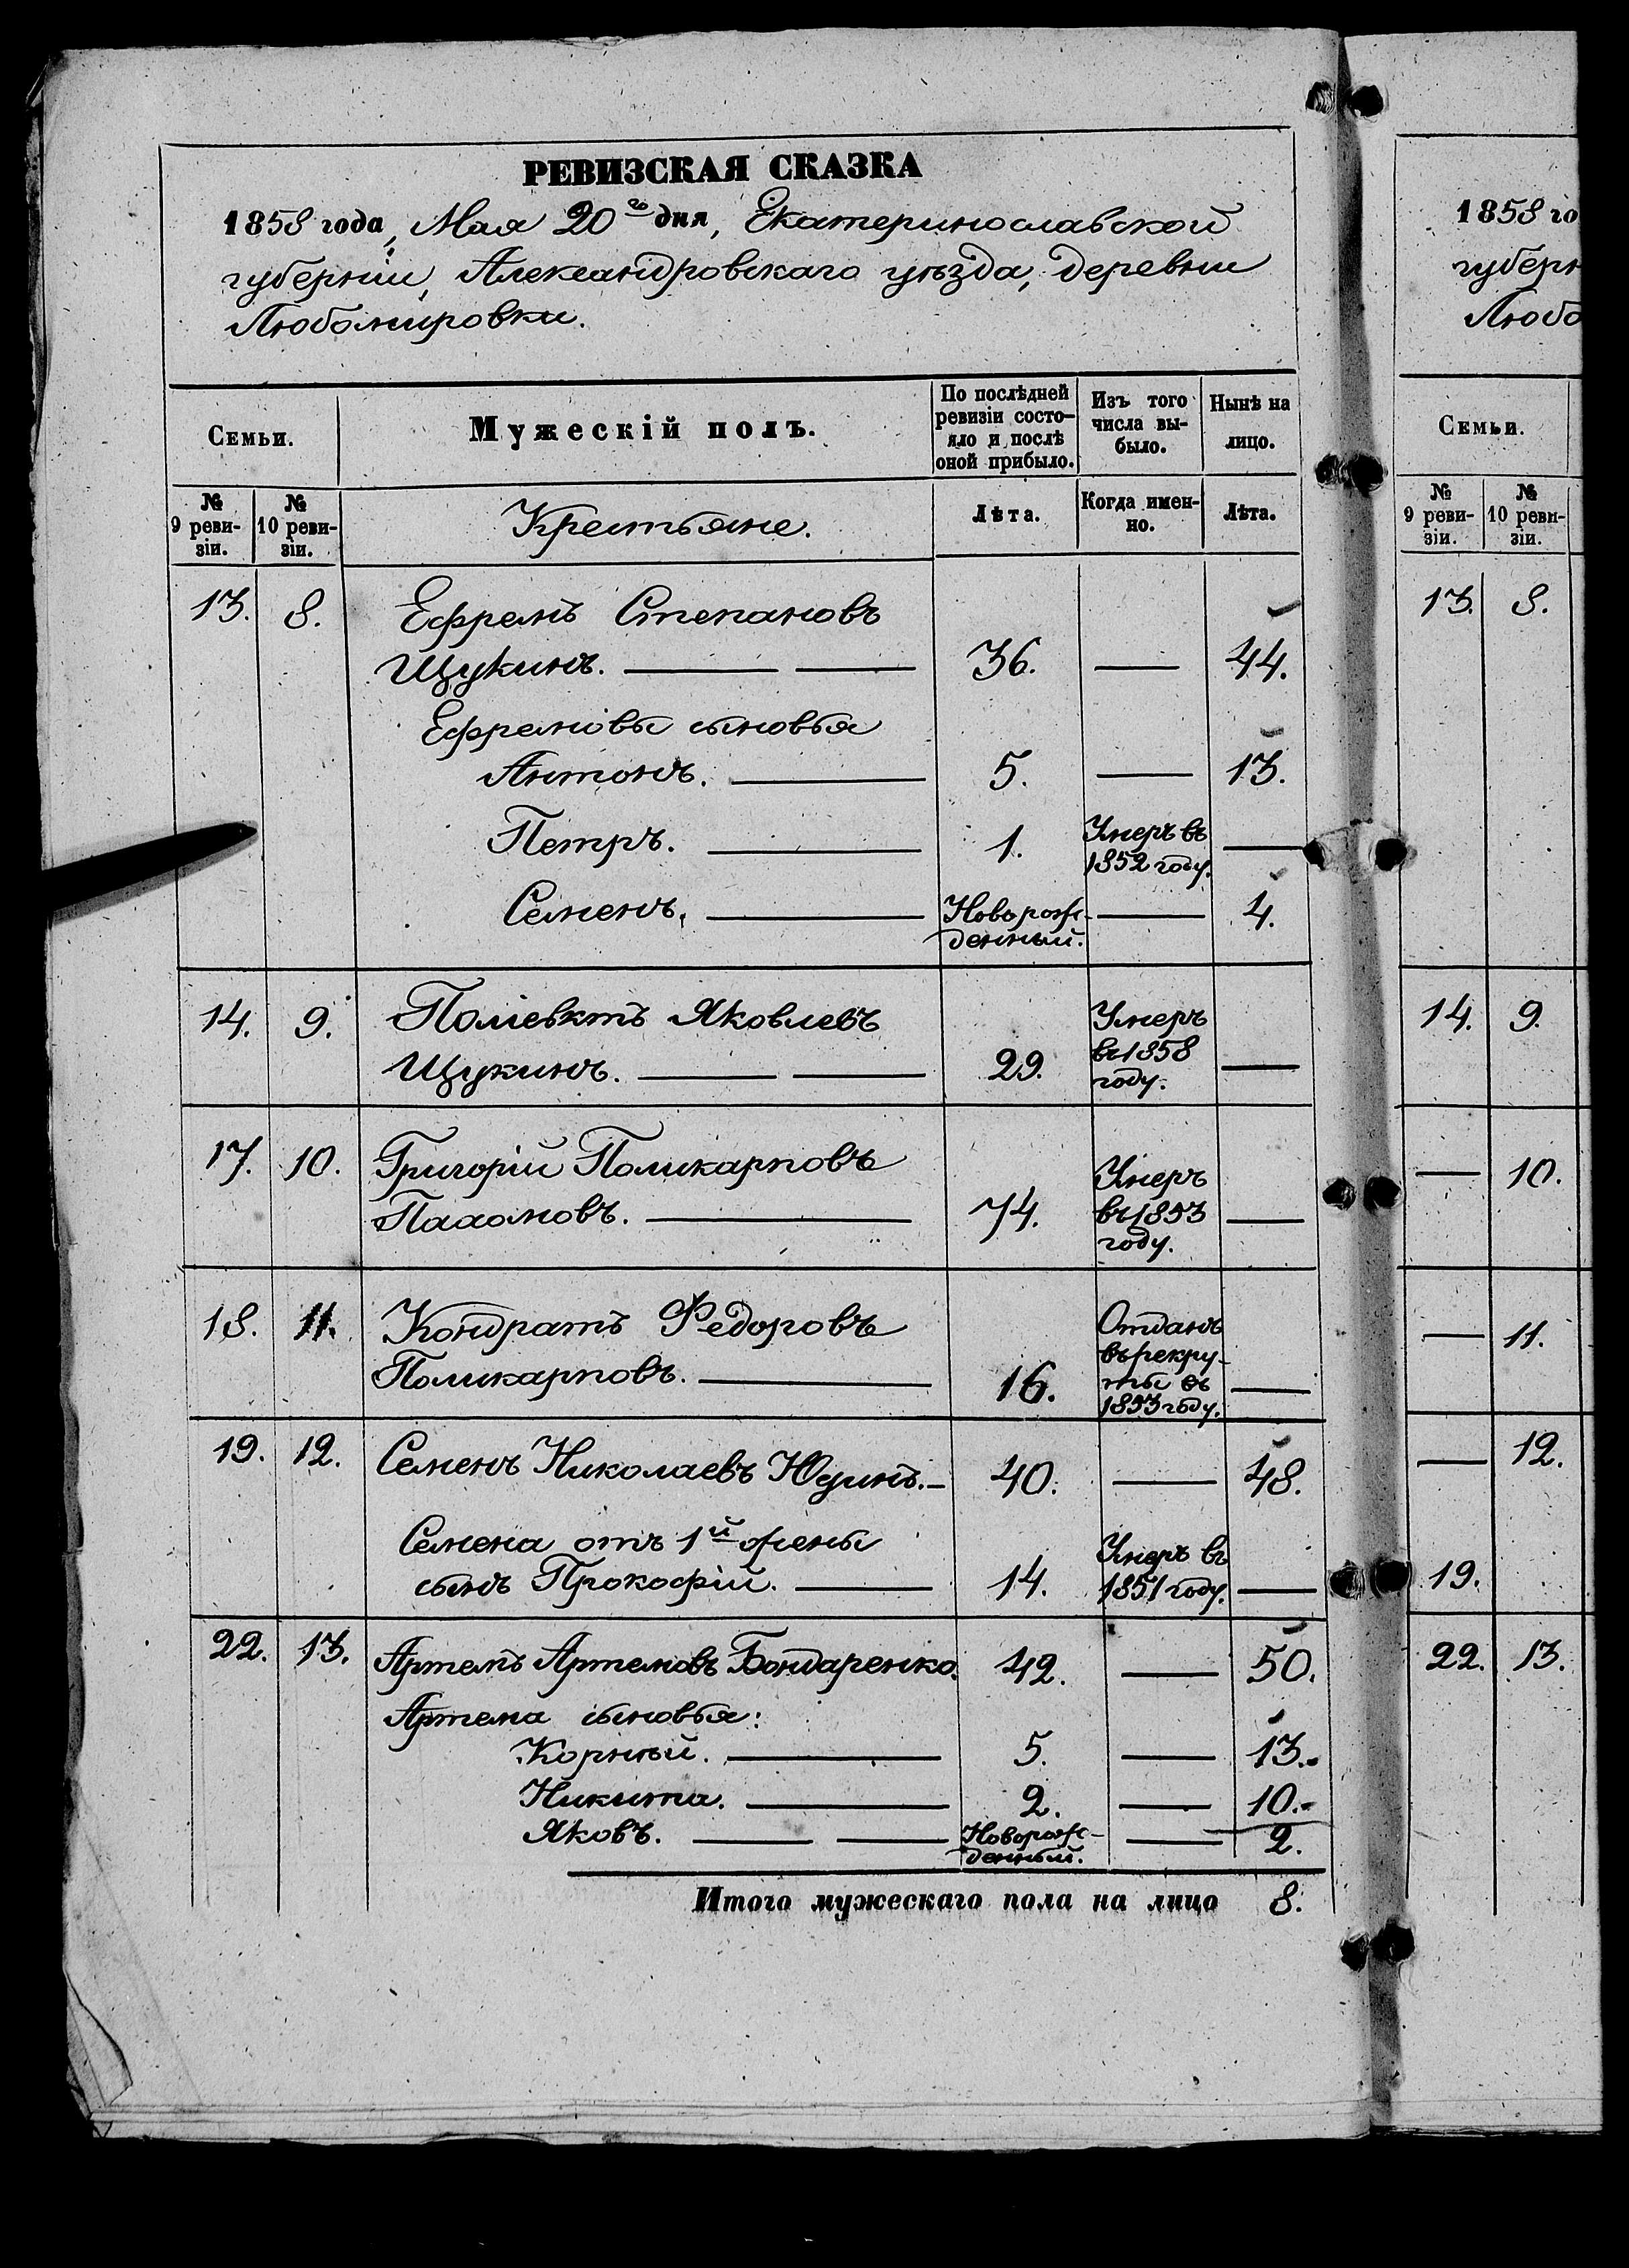 РЕВИЗСКАЯ СКАЗКА
1858 года, Мая 20го дня, Екатеринославской
губерніи, Александровскаго уѣзда, деревни
Любомировки.
Семьи.
Мужескій полъ.
По послѣдней
ревизіи состо-
яло и послѣ
оной прибыло.
Изъ того
числа вы-
было.
Нынѣ на
лицо.
№
9 реви-
зіи.
№
10 реви-
зіи.
Крестьяне.
Лѣта.
Когда имен-
но.
Лѣта.
13. 8. Ефремъ Степановъ
Щукинъ. 36. — 44.
Ефремовы сыновья
Антонъ. 5. — 13.
Петръ. 1. Умеръ въ —
1852 году.
Семенъ.Новорож- — 4.
денный.
14. 9. Поліевктъ Яковлевъ Умеръ
Щукинъ. 29. въ 1858 —
году.
17. 10. Григорій Поликарповъ Умеръ
Пахомовъ. 74. въ 1853 —
году.
18. 11. Кондратъ Федоровъ Отданъ
въ рекру-
Поликарповъ. 16. ты въ —
1853 году.
19. 12. Семенъ Николаевъ Юдинъ. 40. — 48.
Семена отъ 1й жены Умеръ въ
сынъ Прокофій. 14. 1851 году. —
22. 13. Артемъ Артемовъ Бондаренко. 42. — 50.
Артема сыновья:
Корный. 5. — 13.
Никита. 2. — 10.
Яковъ.Новорож- — 2.
денный.
Итого мужескаго пола на лицо 8.
1858 го
губерн
Любо
Семьи.
№
9 реви-
зіи.
№
10 реви-
зіи.
13. 8.
14. 9.
— 10.
— 11.
— 12.
19.
22. 13.